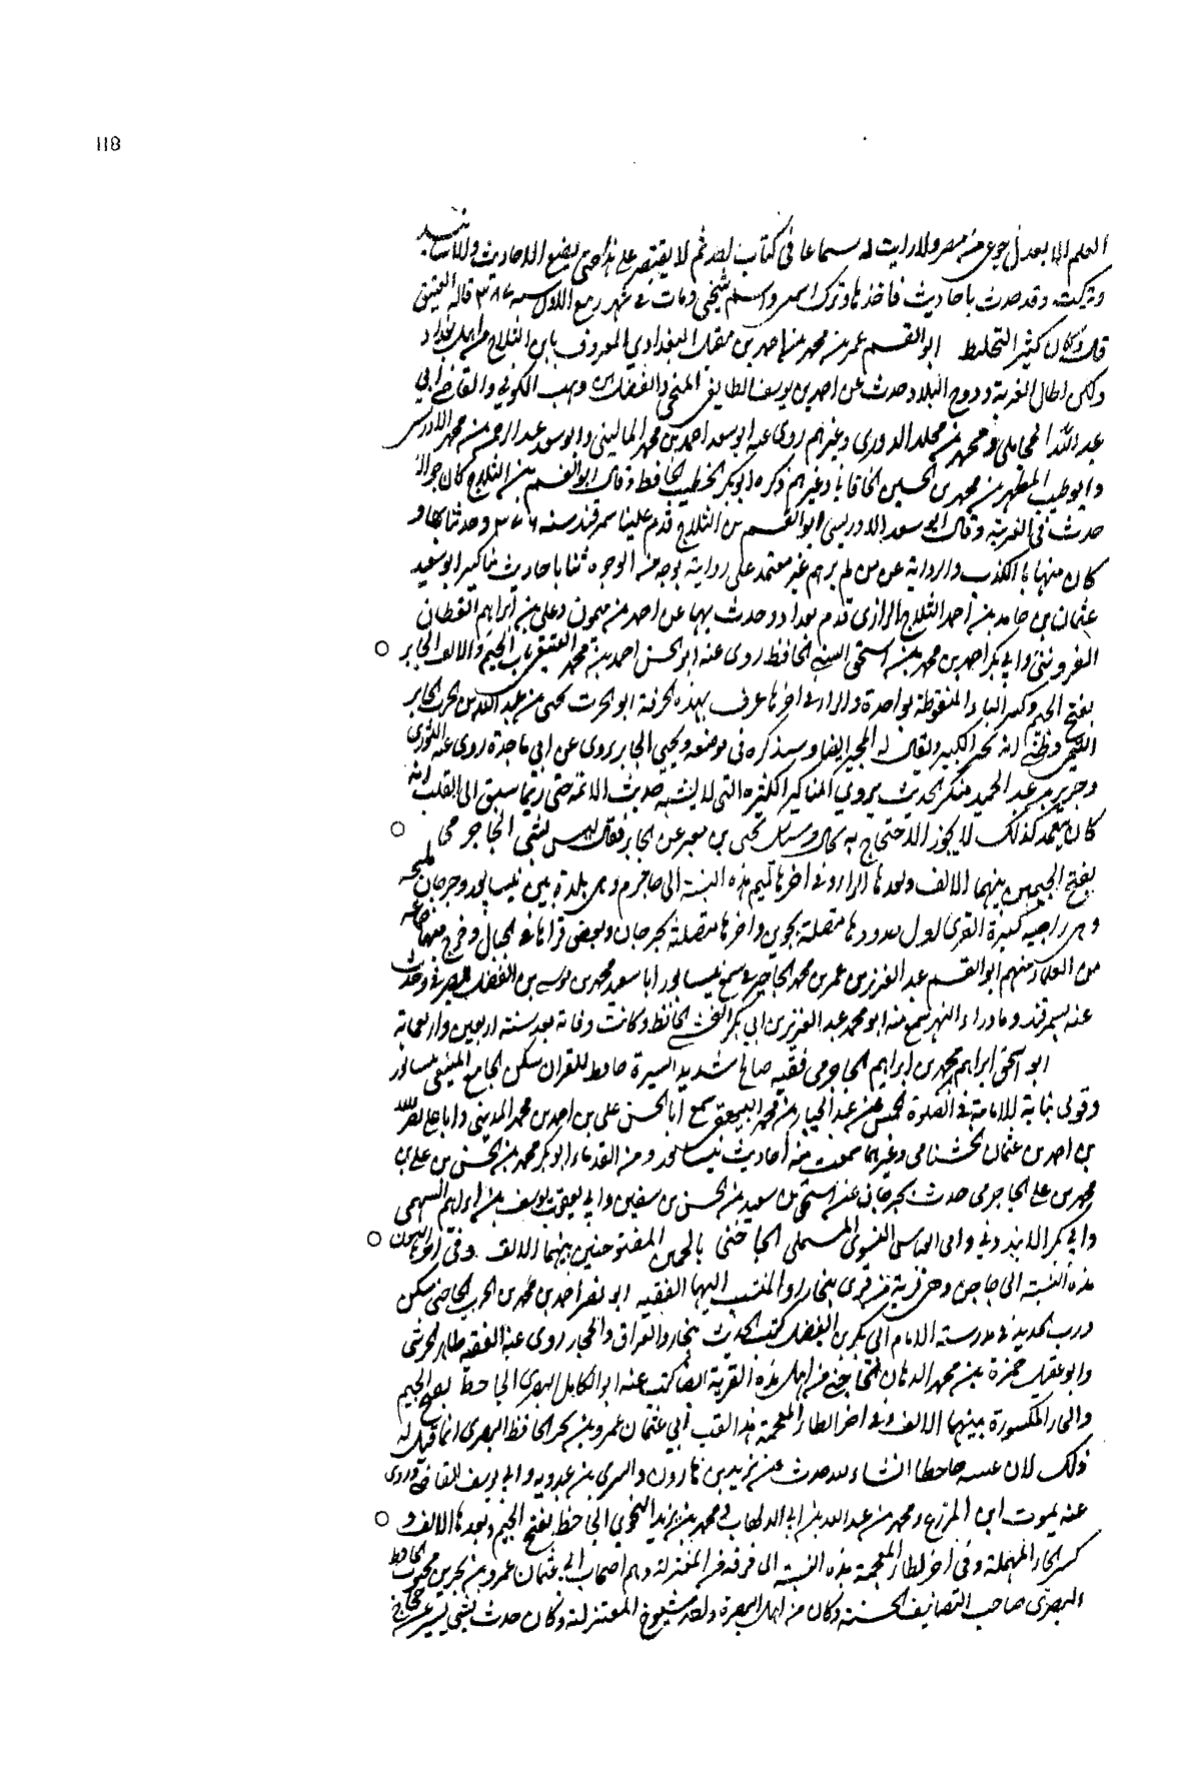 118
العلم الا بعد رجوعى من مصر ولا رايت له سماعا فى كتاب احد ثم لا يقتصر على هذا حتى يضع الاحاديث والاسانيد
ويركب وقد حدث باحاديث فاخذها وترك اسمى واسم شيخى ومات فى شهر ربيع الاول سنة ٣٨٧ قاله العتيقى
قال وكان كثير التخليط ابو القسم عمر بن محمد بن احمد بن مقبل البغدادي المعروف بابن الثلاج من اهل بغداد
وكان اطال الغربة ودوخ البلاد حدث عن احمد بن يوسف الطايى المنبجى والفضل بن وهب الكوفى والقاضى ابي
عبد الله المحاملى ومحمد بن مخلد الدورى وغيرهم روى عنه ابو سعد احمد بن محمد المالينى وابو سعد عبد الرحمن بن محمد الادريسى
وابو طيب المطهر بن محمد بن الحسين الخاقانى وغيرهم ذكره ابو بكر الخطيب الحافظ وقال ابو القسم بن الثلاج كان جوالا
حدث فى الغربة وقال ابو سعد الادريسى ابو القسم بن الثلاج قدم علينا سمرقند سنة وحدثنا بها و
كان متهما بالكذب والرواية عن من لم يرهم غير معتمد على روايته بوجه من الوجوه ثنا باحاديث مناكير ابو سعيد
عثمان بن حامد بن احمد الثلاج الرازى قدم بغداد وحدث بها عن احمد بن ميمون وعلى بن ابراهيم القطان
القزوينى وابى بكر احمد بن محمد بن اسحق السنى الحافظ روى عنه ابو الحسن احمد بن محمد العتيقى باب الجيم والالف الجابر
بفتح الجيم وكسر الباء المنقوطة بواحدة والراء فى اخرها عرف بهذه الحرفة ابو الحرث يحيى بن عبد الله بن الحرث الجابر
التيمى وظنى انه يجبر الكسير ويقال له المجبر ايضا وسيذكره فى موضعه ويحيى الجابر يروى عن ابى ماجدة روى عنه الثورى
وجرير بن عبد الحميد منكر الحديث يروى المناكير الكثيره التى لا يشبه حديث الائمة حتى ربما سبق الى القلب انه
كان يتعمد كذلك لا يجوز الاحتجاج به بحال وسئل يحيى بن معين عن الجابر فقال ليس بشى الجاجرمى
بفتح الجيمين بينهما الالف وبعدها الراء وفى اخرها الميم هذه النسبة الى جاجرم وهى بلدة بين نيسابور وجرجان مليحة
وهى ناحية كبيرة القرى اول حدودها متصلة بجوين واخرها متصلة بجرجان وبعض قراها فى الجبال وخرج منها جماعة
من العلماء منهم ابو القسم عبد العزيز بن عمر بن محمد الجاجرمى سمع بنيسابور ابا سعد محمد بن موسى بن الفضل الصيرفى وحدث
عنه بسمرقند وما وراء النهر سمع منه ابو محمد عبد العزيز بن ابي بكر النخشبى الحافظ وكانت وفاته بعد سنة اربعين واربعماية
ابو اسحق ابراهيم بن محمد بن ابراهيم الجاجرمى فقيه صالح سديد السيرة حافظ للقران سكن الجامع المنيعى بنيسابور
وتولى نيابة الامامة فى الصلوة الخمس عن عبد الجبار بن محمد البيهقى سمع ابا الحسن على بن احمد بن محمد المدينى وابا على نصر الله
بن احمد بن عثمان الخشنامى وغيرهما سمعت منه احاديث بنيسابور ومن القدماء ابو بكر محمد بن الحسن بن على بن
محمد بن على الجاجرمى حدث بجرجان عن اسحق بن سعيد بن الحسن بن سفين وابى يعقوب يوسف بن ابراهيم السهمى
وابى بكر الابندونى وابى العباس النسوى المستملى الجاجنى بالجيمين المفتوحتين بينهما الالف وفى اخرها النون
هذه النسبة الى جاجن وهى قرية من قرى بخارا والمنتسب اليها الفقيه ابو نصر احمد بن محمد بن الحرث الجاجنى سكن
درب الحديد فى مدرسة الامام ابى بكر بن الفضل كتب الحديث ببخارا والعراق والحجاز روى عنه الفقيه طاهر الحريثى
وابو عقيل حمزة بن محمد الدهان الجاجنى من اهل هذه القرية ايضا كتب عنه ابو الكامل البصرى الجاحظ بفتح الجيم
والحاء المكسورة بينهما الالف وفى اخر الظاء المعجمة هذا لقب أبى عثمان عمرو بن بحر الحافظ البصرى انما قيل له
ذلك لان عينيه جاحظتا النشاء حدث عن يزيد بن هارون والسرى بن عبدويه وابى يوسف القاضى وروى
عنه يموت ابن المزرع ومحمد بن عبد الله بن ابى الدلهاث ومحمد بن يزيد النحوى الجاحظى بفتح الجيم وبعدها الالف و
كسر الحاء المهملة وفى اخر الظاء المعجمة هذه النسبة الى فرقة من المعتزلة وهم اصحاب ابى عثمان عمرو بن بحر بن محبوب الجاحظ
البصرى صاحب التصانيف الحسنة وكان من اهل البصرة واحد شيوخ المعتزلة وكان حدث بشى يسير عن حجاج